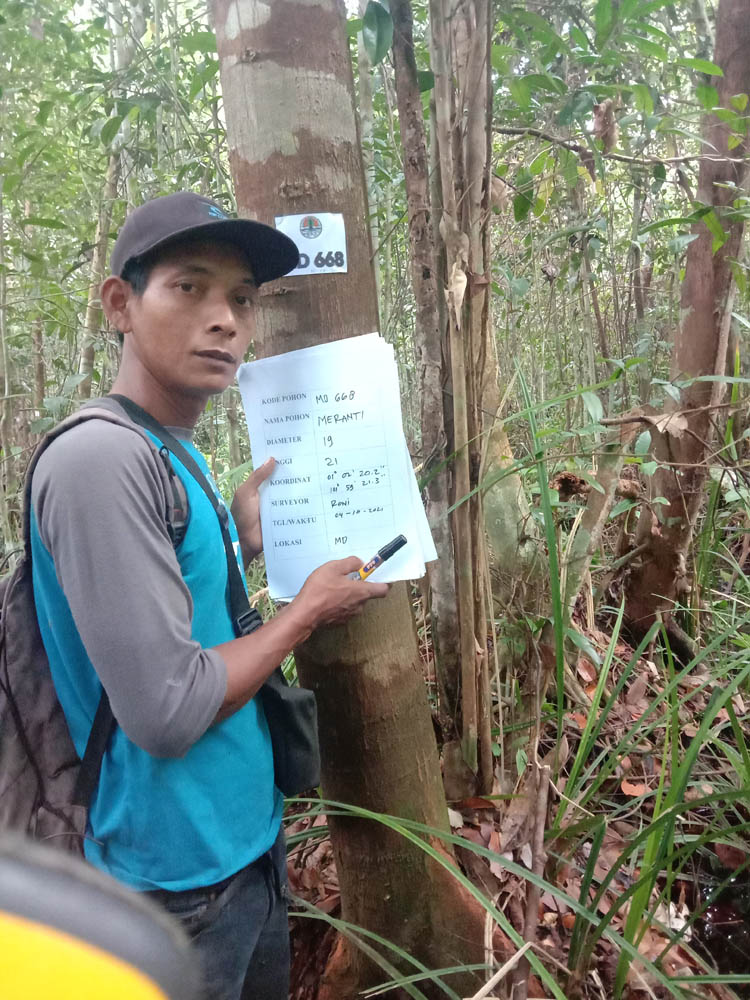 D 668
KODE POHON MD 668
NAMA POHON MERANTI
DIAMETER 19
NGGI 21
KOORDINAT 01° 02' 20.2"
101° 59' 21.3"
SURVEYOR RONI
TGL/WAKTU 04-10-2021
LOKASI MD